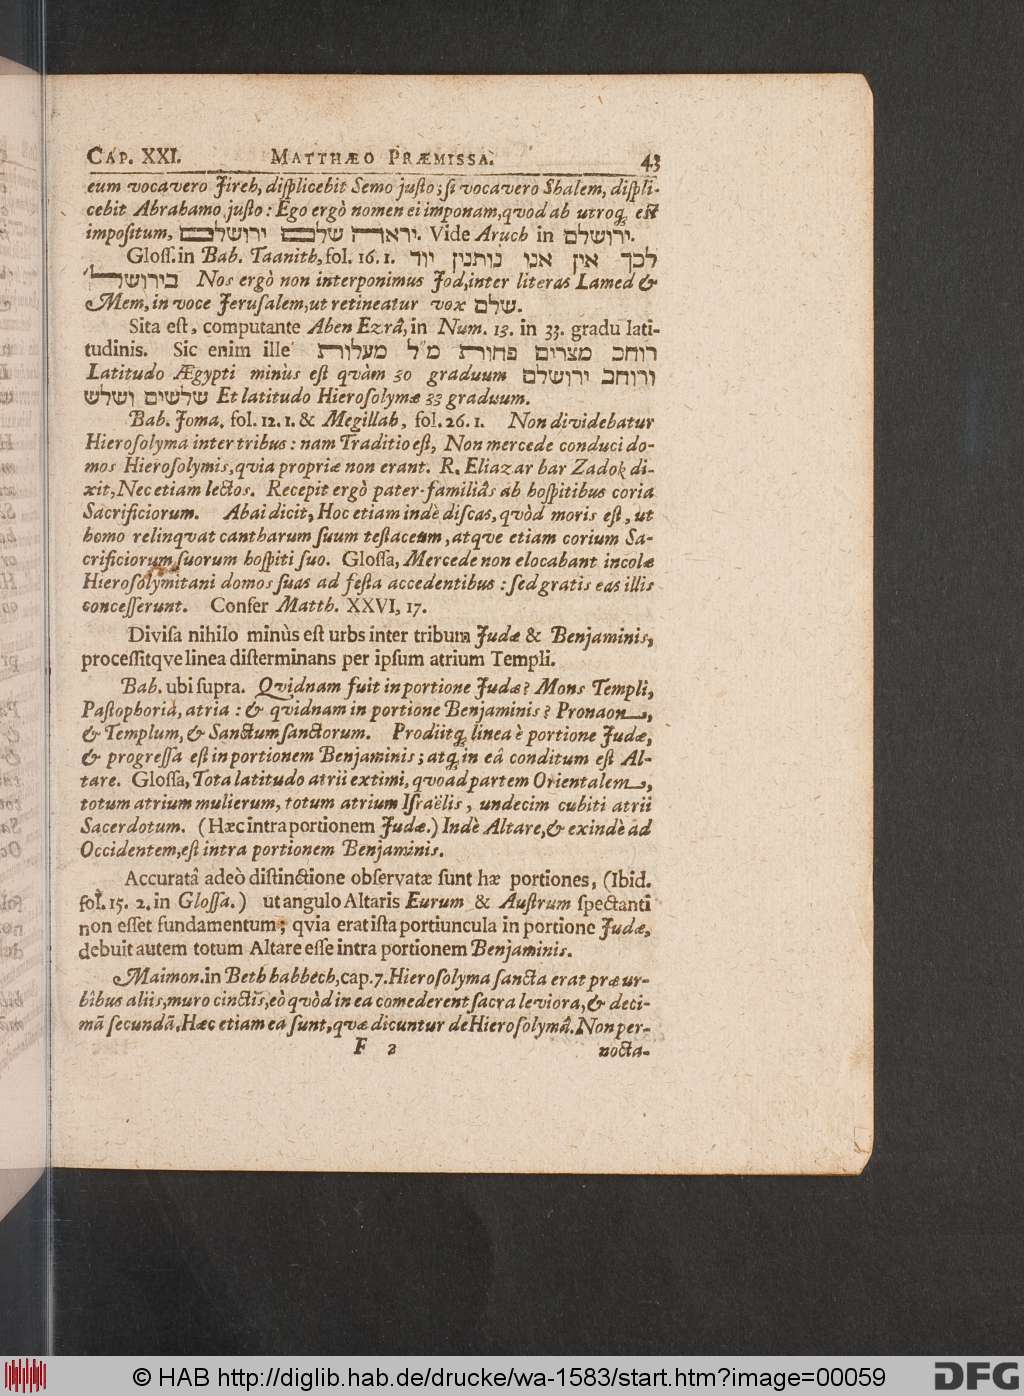 CAP. XXI. MATTHÆO PRÆMISSA. 43
eum vocavero Jireh, displicebit Semo justo; si vocavero Shalem, displi-
cebit Abrahamo justo: Ego ergò nomen ei imponam, qvod ab utroq; est
impositum, יראה שלם ירושלם. Vide Aruch in ירושלם.
Gloss. in Bab. Taanith, fol. 16. 1. לכך אין אנו נותנין יוד
בירושל׳ Nos ergò non interponimus Jod, inter literas Lamed &
Mem, in voce Jerusalem, ut retineatur vox שלם.
Sita est, computante Aben Ezrâ, in Num. 13. in 33. gradu lati-
tudinis. Sic enim ille רוחב מצרים פחות מ״ל מעלות
Latitudo Ægypti minùs est qvàm 30 graduum ורוחב ירושלם
שלשים ושלש Et latitudo Hierosolymæ 33 graduum.
Bab. Joma, fol. 12. 1. & Megillah, fol. 26. 1. Non dividebatur
Hierosolyma inter tribus: nam Traditio est, Non mercede conduci do-
mos Hierosolymis, qvia propriæ non erant. R. Eliazar bar Zadok di-
xit, Nec etiam lectos. Recepit ergò pater-familiâs ab hospitibus coria
Sacrificiorum. Abai dicit, Hoc etiam indè discas, qvòd moris est, ut
homo relinqvat cantharum suum testaceum, atqve etiam corium Sa-
crificiorum suorum hospiti suo. Glossa, Mercede non elocabant incolæ
Hierosolymitani domos suas ad festa accedentibus: sed gratis eas illis
concesserunt. Confer Matth. XXVI, 17.
Divisa nihilo minùs est urbs inter tribum Judæ & Benjaminis,
processitqve linea disterminans per ipsum atrium Templi.
Bab. ubi supra. Qvidnam fuit in portione Judæ? Mons Templi,
Pastophoria, atria: & qvidnam in portione Benjaminis? Pronaon,
& Templum, & Sanctum sanctorum. Prodiitq; linea è portione Judæ,
& progressa est in portionem Benjaminis; atq; in eâ conditum est Al-
tare. Glossa, Tota latitudo atrii extimi, qvoad partem Orientalem,
totum atrium mulierum, totum atrium Israëlis, undecim cubiti atrii
Sacerdotum. (Hæc intra portionem Judæ.) Indè Altare, & exindè ad
Occidentem, est intra portionem Benjaminis.
Accuratâ adeò distinctione observatæ sunt hæ portiones, (Ibid.
fol. 15. 2. in Glossa.) ut angulo Altaris Eurum & Austrum spectanti
non esset fundamentum; qvia erat ista portiuncula in portione Judæ,
debuit autem totum Altare esse intra portionem Benjaminis.
Maimon. in Beth habbech, cap. 7. Hierosolyma sancta erat præ ur-
bibus aliis, muro cinctis, eò qvòd in ea comederent sacra leviora, & deci-
mã secundã, Hæc etiam ea sunt, qvæ dicuntur de Hierosolymâ. Non per-
F 2 nocta-
© HAB http://diglib.hab.de/drucke/wa-1583/start.htm?image=00059
DFG